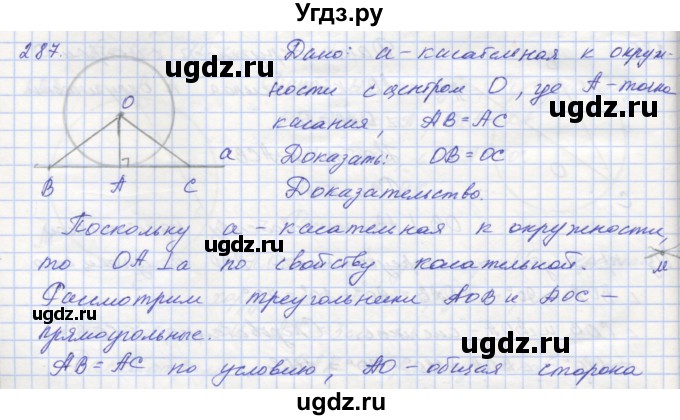 Угдз.ру
287.
Дано: a - касательная к окруж-
ности с центром O, где A - точка
касания, AB = AC
Доказать: OB = OC
Доказательство.
O
a
B A C
Поскольку a - касательная к окружности,
то OA ⊥ a по свойству касательной.
Рассмотрим треугольники AOB и AOC –
прямоугольные.
AB = AC по условию, AO - общая сторона
uqdz.ru
uqdz.ru
uqdz.ru
uqdz.ru
uqdz.ru
uqdz.ru